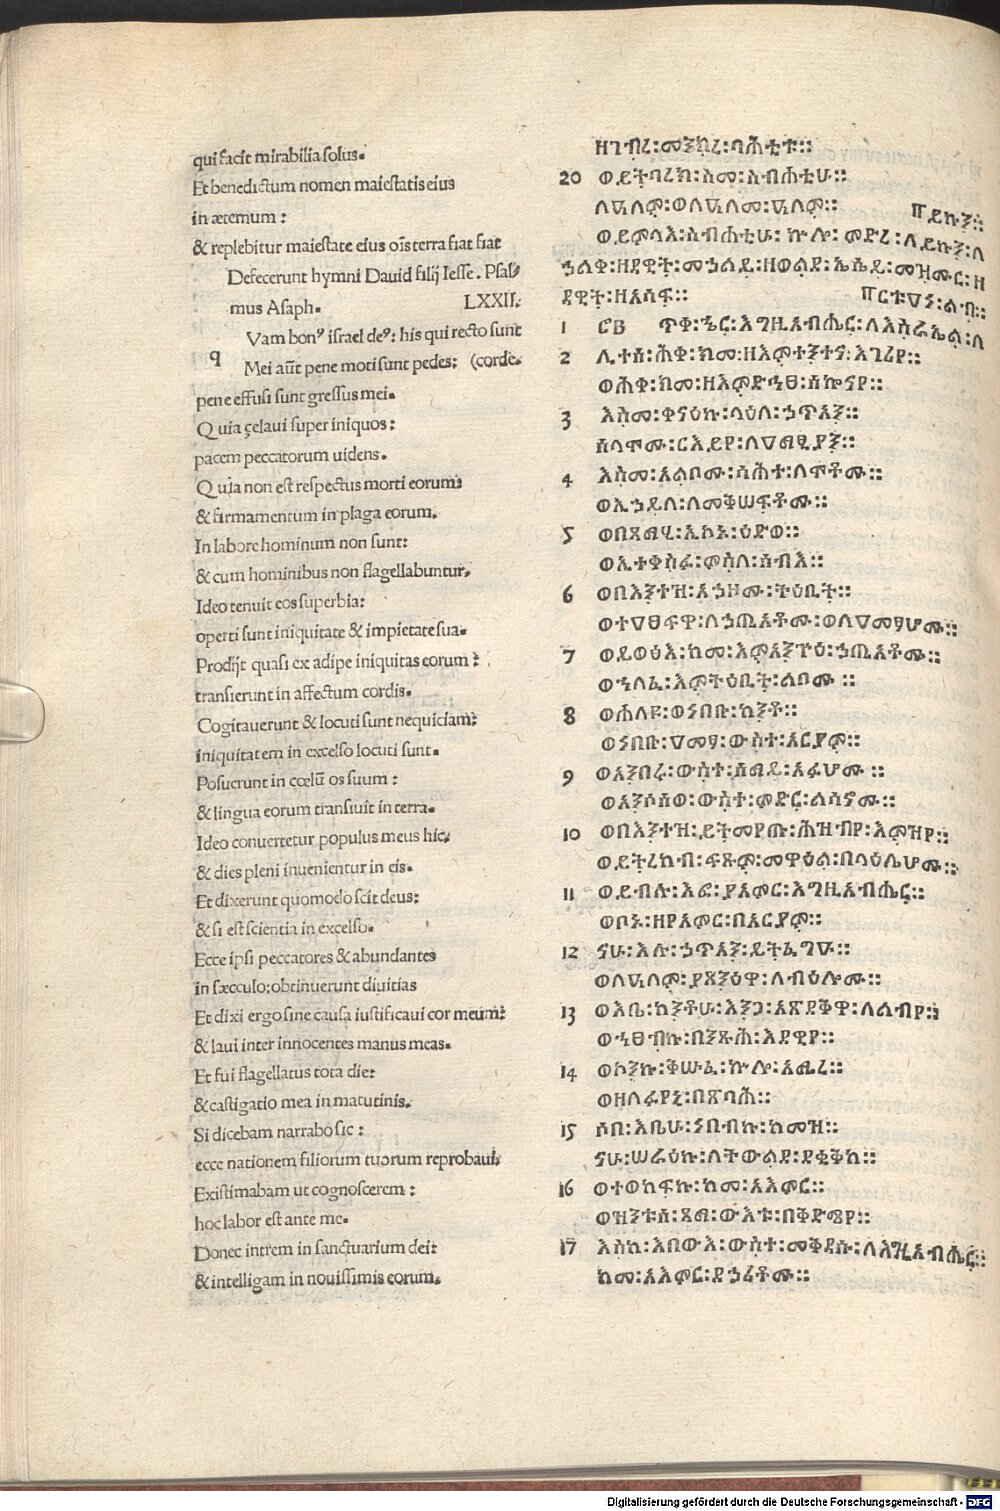 qui facit mirabilia solus.
Et benedictum nomen maiestatis eius
in æternum :
& replebitur maiestate eius oīs terra fiat fiat
Defecerunt hymni Dauid filij Iesse . Psal
mus Asaph. LXXII.
q Vam bonꝰ israel deꝰ: his qui recto sunt
Mei aūt pene moti sunt pedes: (corde.
pene effusi sunt gressus mei.
Quia çelaui super iniquos:
pacem peccatorum uidens.
Quia non est respectus morti eorum:
& firmamentum in plaga eorum.
In labore hominum non sunt:
& cum hominibus non flagellabuntur.
Ideo tenuit eos superbia:
operti sunt iniquitate & impietate sua.
Prodijt quasi ex adipe iniquitas eorum :
transierunt in affectum cordis.
Cogitauerunt & locuti sunt nequiciam:
iniquitatem in excelso locuti sunt.
Posuerunt in cœlū os suum :
& lingua eorum transiuit in terra.
Ideo conuertetur populus meus hic:
& dies pleni inuenientur in eis.
Et dixerunt quomodo scit deus:
& si est scientia in excelso.
Ecce ipsi peccatores & abundantes
in sæcculo: obtinuerunt diuitias
Et dixi ergo sine causa iustificaui cor meum:
& laui inter innocentes manus meas.
Et fui flagellatus tota die:
& castigatio mea in matutinis.
Si dicebam narrabo sic :
ecce nationem filiorum tuorum reprobaui.
Existimabam ut cognoscerem :
hoc labor est ante me.
Donec intrem in sanctuarium dei:
& intelligam in nouissimis eorum.
ዘገብረ፡መንክረ፡ባሕቲቱ።
20 ወይትባረክ፡ስመ፡ስብሐቲሁ።
ለዓለም፡ወለዓለመ፡ዓለም። ይኩን።
ወይምላእ፡ስብሐቲሁ፡ኵሎ፡ምድረ፡ለይኩን፡ለ
ኃልቀ፡ዘዳዊት፡መኃልይ፡ዘወልደ፡እሴይ፡መዝሙር፡ዘ
ዳዊት፡ዘአሳፍ። ርቱዓነ፡ልብ።
1 ፸፪ ጥቀ፡ኄር፡እግዚአብሔር፡ለእስራኤል፡ለ
2 ሊተሰ፡ሕቀ፡ከመ፡ዘእምተንተና፡እገሪየ።
ወሕቀ፡ከመ፡ዘእምድኅፀ፡ሰኰናየ።
3 እስመ፡ቀናዕኩ፡ላዕለ፡ኃጥአን።
ሰላሞሙ፡ርእይየ፡ለዐማፂያን።
4 እስመ፡አልቦሙ፡ስሕተ፡ለሞቶሙ።
ወኢኃይለ፡ለመቅሠፍቶሙ።
5 ወበጻማ፡ኢኮኑ፡ዕድወ።
ወኢተቀስፉ፡ምስለ፡ሰብእ።
6 ወበእንተዝ፡አኃዞሙ፡ትዕቢት።
ወተዐፀፍዋ፡ለኃጢአቶሙ፡ወለዐመፃሆሙ።
7 ወይወፅእ፡ከመ፡እምአንጕዕ፡ኃጢአቶሙ።
ወኀለፈ፡እምትዕቢት፡ልቦሙ።
8 ወሐለዩ፡ወነበቡ፡ከንቶ።
ወነበቡ፡ዐመፃ፡ውስተ፡አርያም።
9 ወአንበሩ፡ውስተ፡ሰማይ፡አፉሆሙ።
ወአንሶሰወ፡ውስተ፡ምድር፡ልሳኖሙ።
10 ወበእንተዝ፡ይትመየጡ፡ሕዝብየ፡እምዝየ።
ወይትረከብ፡ፍጹም፡መዋዕል፡በላዕሌሆሙ።
11 ወይብሉ፡እፎ፡ያአምር፡እግዚአብሔር።
ወቦኑ፡ዘየአምር፡በአርያም።
12 ናሁ፡እሉ፡ኃጥአን፡ይትፌግዑ።
ወለዓለም፡ያጸንዕዋ፡ለብዕሎሙ።
13 ወእቤ፡ከንቶሁ፡እንጋ፡አጽደቅዋ፡ለልብየ።
ወኀፀብኩ፡በንጹሕ፡እደዊየ።
14 ወኮንኩ፡ቅሡፈ፡ኵሎ፡አሚረ።
ወዘለፋየኒ፡በጽባሕ።
15 ሶበ፡እቤሁ፡ነበብኩ፡ከመዝ።
ናሁ፡ሠራዕኩ፡ለትውልደ፡ደቂቅከ።
16 ወተወከፍኩ፡ከመ፡አእምር።
ወዝንቱሰ፡ጻማ፡ውእቱ፡በቅድሜየ።
17 እስከ፡እበውእ፡ውስተ፡መቅደሱ፡ለእግዚአብሔር።
ከመ፡አእምር፡ደኃሪቶሙ።
Digitalisierung gefördert durch die Deutsche Forschungsgemeinschaft - DFG